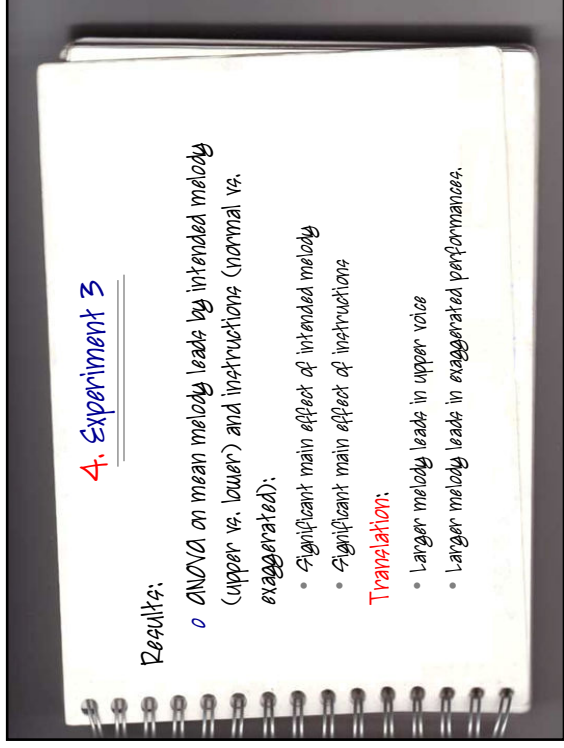 4. Experiment 3
Results:
o ANOVA on mean melody leads by intended melody
(upper vs. lower) and instructions (normal vs.
exaggerated):
• Significant main effect of intended melody
• Significant main effect of instructions
Translation:
• Larger melody leads in upper voice
• Larger melody leads in exaggerated performances.